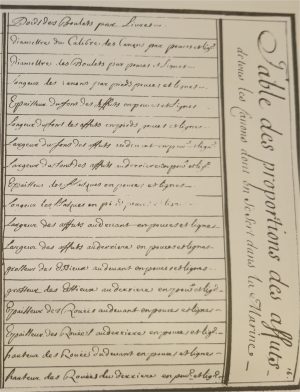 Table des proportions des affuts
de tous les canons dont on se sert dans la Marine
Poids des Boulets par Livres
diametres du Calibre des Canons par pouces et lig.
diametres des Boulets par pouces et Lignes
longeur des canons par pieds pouces et lignes
Epaisseur du fons des Affuts en pouces et Lignes
longeur du fons des affuts en pieds pouces et lignes
Largeur du fons des affuts en devant en pouces et lignes
Largeur du fons des affuts en derriere en pouces et lig.
Epaisseur des flasques en pouces et lignes
longeur des flasques en pieds pouces et lignes
Largeur des affuts au devant en pouces et lignes
Largeur des affuts au derriere en pouces et lignes
grosseur des Essieux au devant en pouces et lignes
grosseur des Essieux au derriere en pouces et lig.
Epaisseur des Rouës au devant en pouces et lignes
Epaisseur des Rouës au derriere en pouces et lignes
hauteur des Rouës d'audevant en pouces et lignes
hauteur des Rouës du derriere en pouces et lig.